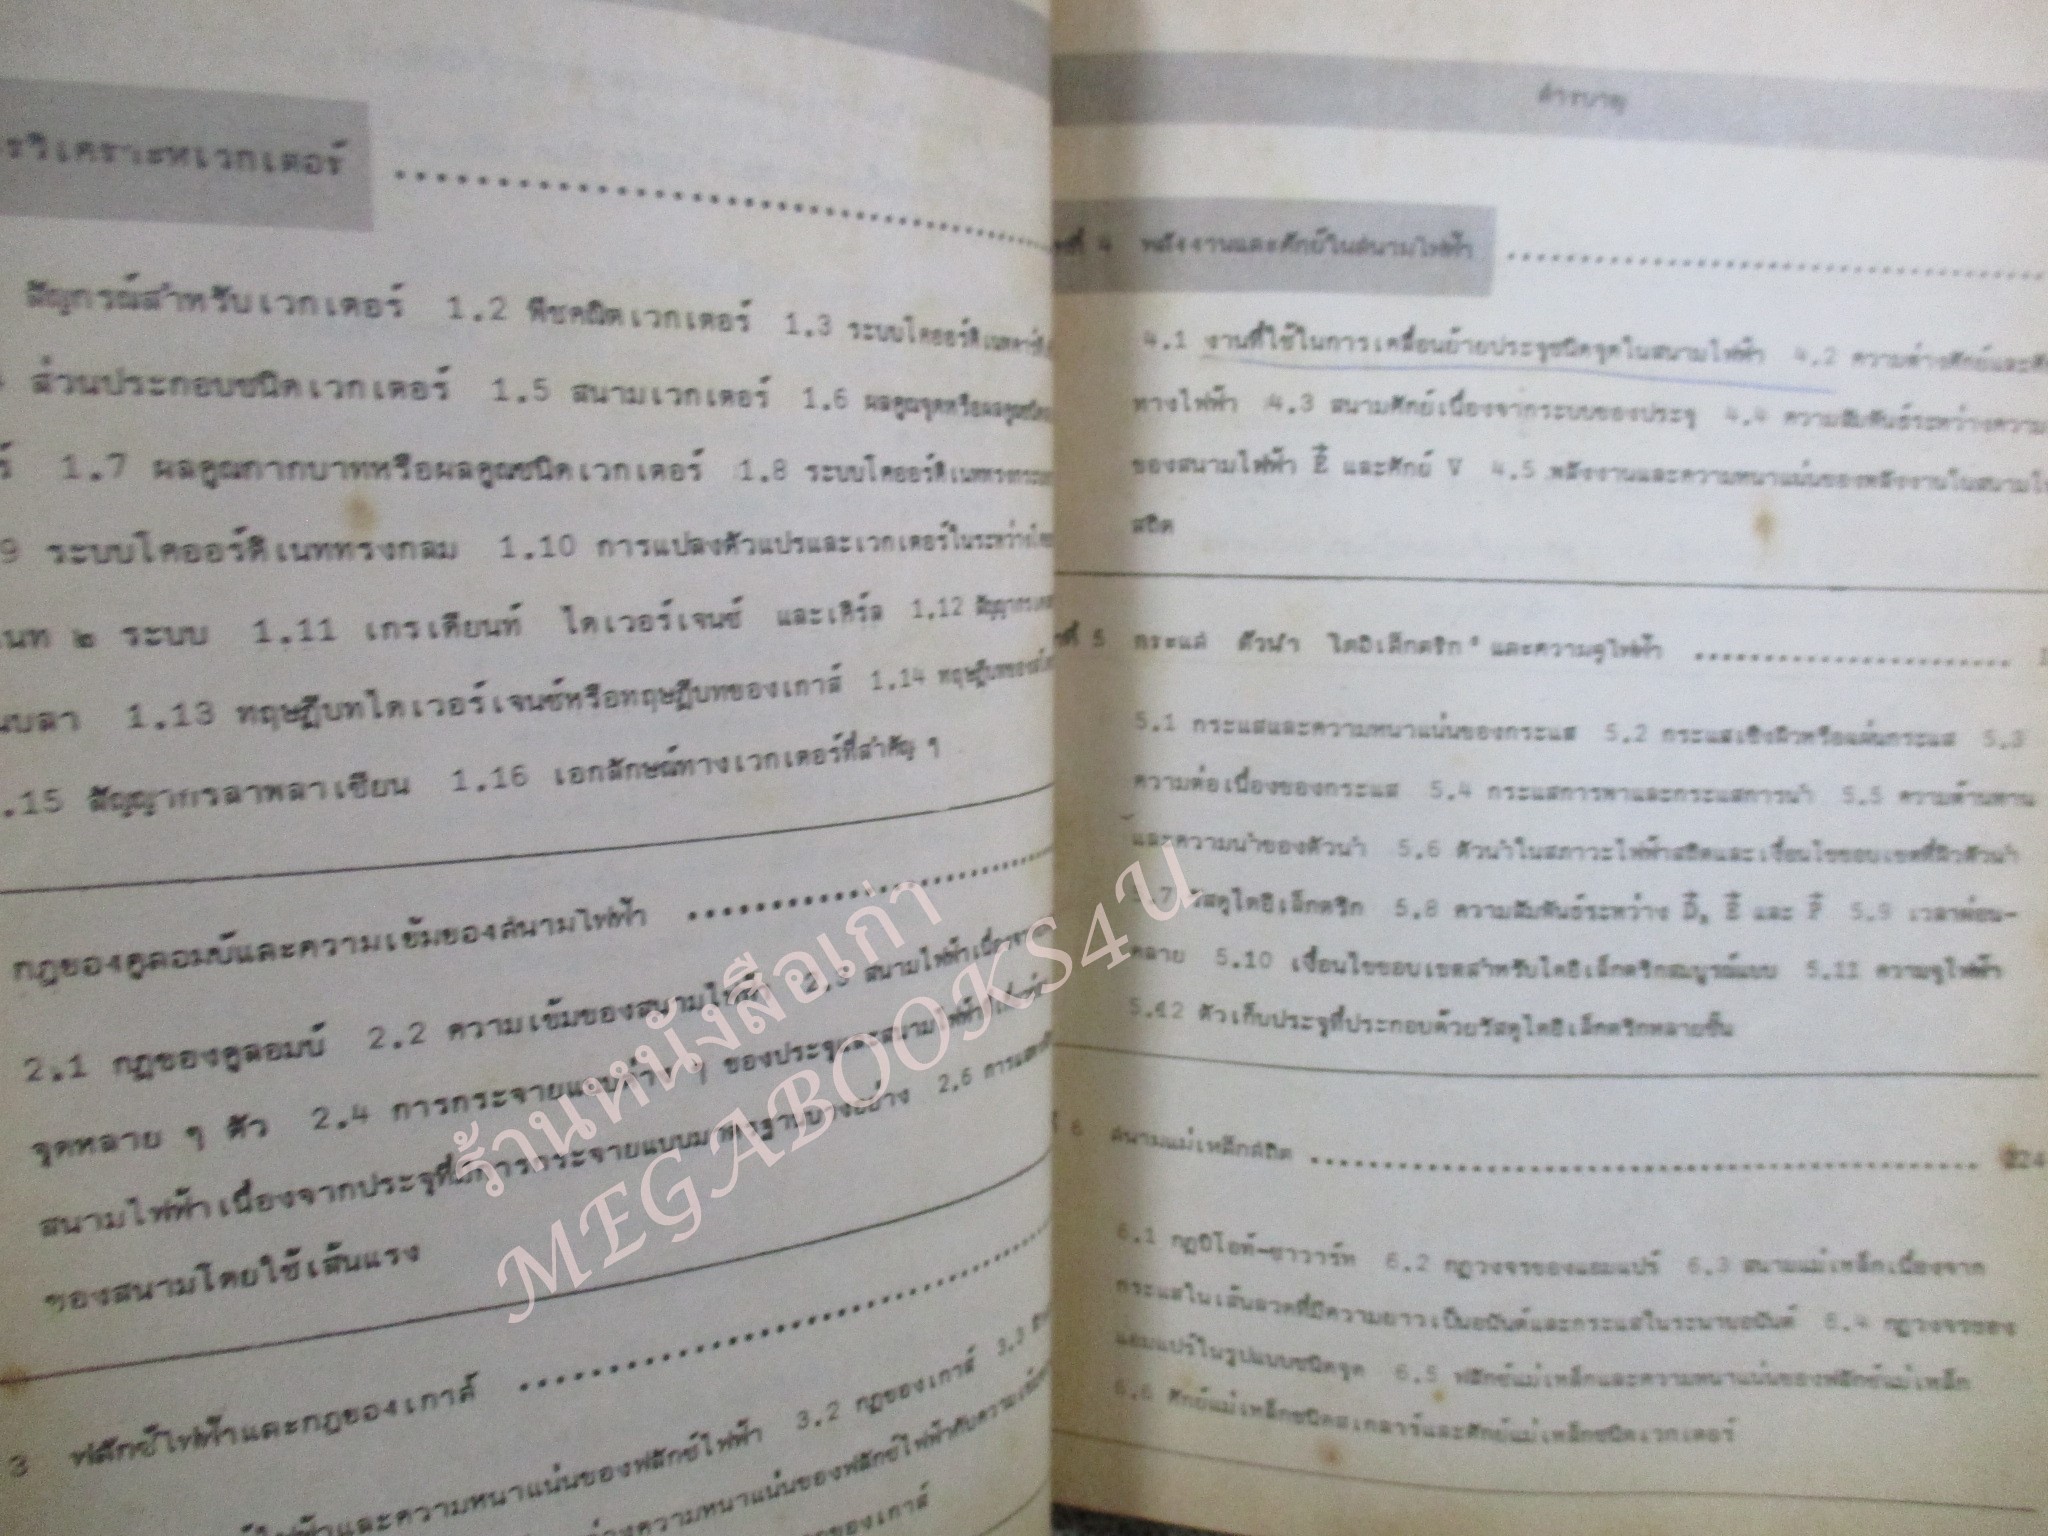 รวิเคราะหเวกเตอร์
สัญกรณ์สำหรับเวกเตอร์ 1.2 พีชคณิตเวกเตอร์ 1.3 ระบบโคออร์ดิเนทคาร์ที
ส่วนประกอบชนิดเวกเตอร์ 1.5 สนามเวกเตอร์ 1.6 ผลคูณจุดหรือผลคูณชนิด
ร์ 1.7 ผลคูณกากบาทหรือผลคูณชนิดเวกเตอร์ 1.8 ระบบโคออร์ดิเนททรงกระบอก
9 ระบบโคออร์ดิเนททรงกลม 1.10 การแปลงตัวแปรและเวกเตอร์ในระหว่าง
เนท ๒ ระบบ 1.11 เกรเดียนท์ ไดเวอร์เจนซ์ และเคิร์ล 1.12 สัญญากร
นบลา 1.13 ทฤษฎีบทไดเวอร์เจนซ์หรือทฤษฎีบทของเกาส์ 1.14 ทฤษฎีบทของ
.15 สัญญากรลาพลาเซียน 1.16 เอกลักษณ์ทางเวกเตอร์ที่สำคัญ ๆ
กฎของคูลอมบ์และความเข้มของสนามไฟฟ้า
2.1 กฎของคูลอมบ์ 2.2 ความเข้มของสนามไฟฟ้า 2.3 สนามไฟฟ้าเนื่องจาก
จุดหลาย ๆ ตัว 2.4 การกระจายแบบต่าง ๆ ของประจุและสนามไฟฟ้า
สนามไฟฟ้าเนื่องจากประจุที่มีการกระจายแบบมาตรฐานบางอย่าง 2.6 การแสดง
ของสนามโดยใช้เส้นแรง
3 ฟลักซ์ไฟฟ้าและกฎของเกาส์
ไฟฟ้าและความหนาแน่นของฟลักซ์ไฟฟ้า 3.2 กฎของเกาส์ 3.3
ว่างความหนาแน่นของฟลักซ์ไฟฟ้ากับความเข้ม
ของเกาส์
สารบาญ
ที่ 4 พลังงานและศักย์ในสนามไฟฟ้า
4.1 งานที่ใช้ในการเคลื่อนย้ายประจุชนิดจุดในสนามไฟฟ้า 4.2 ความต่างศักย์และศั
ทางไฟฟ้า 4.3 สนามศักย์เนื่องจากระบบของประจุ 4.4 ความสัมพันธ์ระหว่างความ
ของสนามไฟฟ้า E⃗ และศักย์ V 4.5 พลังงานและความหนาแน่นของพลังงานในสนามไ
สถิต
ที่ 5 กระแส ตัวนำ ไดอิเล็กตริก และความจุไฟฟ้า
5.1 กระแสและความหนาแน่นของกระแส 5.2 กระแสเชิงผิวหรือแผ่นกระแส 5.3
ความต่อเนื่องของกระแส 5.4 กระแสการพาและกระแสการนำ 5.5 ความต้านทาน
และความนำของตัวนำ 5.6 ตัวนำในสภาวะไฟฟ้าสถิตและเงื่อนไขขอบเขตที่ผิวตัวนำ
5.7 วัสดุไดอิเล็กตริก 5.8 ความสัมพันธ์ระหว่าง D⃗, E⃗ และ P⃗ 5.9 เวลาผ่อน-
คลาย 5.10 เงื่อนไขขอบเขตสำหรับไดอิเล็กตริกสมบูรณ์แบบ 5.11 ความจุไฟฟ้า
5.12 ตัวเก็บประจุที่ประกอบด้วยวัสดุไดอิเล็กตริกหลายชั้น
6 สนามแม่เหล็กสถิต 224
6.1 กฎบิโอท์-ซาวาร์ท 6.2 กฎวงจรของแอมแปร์ 6.3 สนามแม่เหล็กเนื่องจาก
กระแสในเส้นลวดที่มีความยาวเป็นอนันต์และกระแสในระนาบอนันต์ 6.4 กฎวงจรของ
แอมแปร์ในรูปแบบชนิดจุด 6.5 ฟลักซ์แม่เหล็กและความหนาแน่นของฟลักซ์แม่เหล็ก
6.6 ศักย์แม่เหล็กชนิดสเกลาร์และศักย์แม่เหล็กชนิดเวกเตอร์
ร้านหนังสือเก่า
MEGABOOKS4U